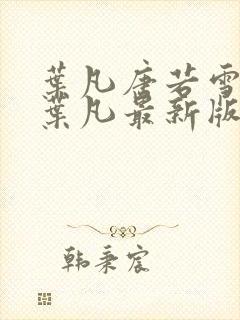 葉凡唐若雪
葉凡最新版
韩秉宸